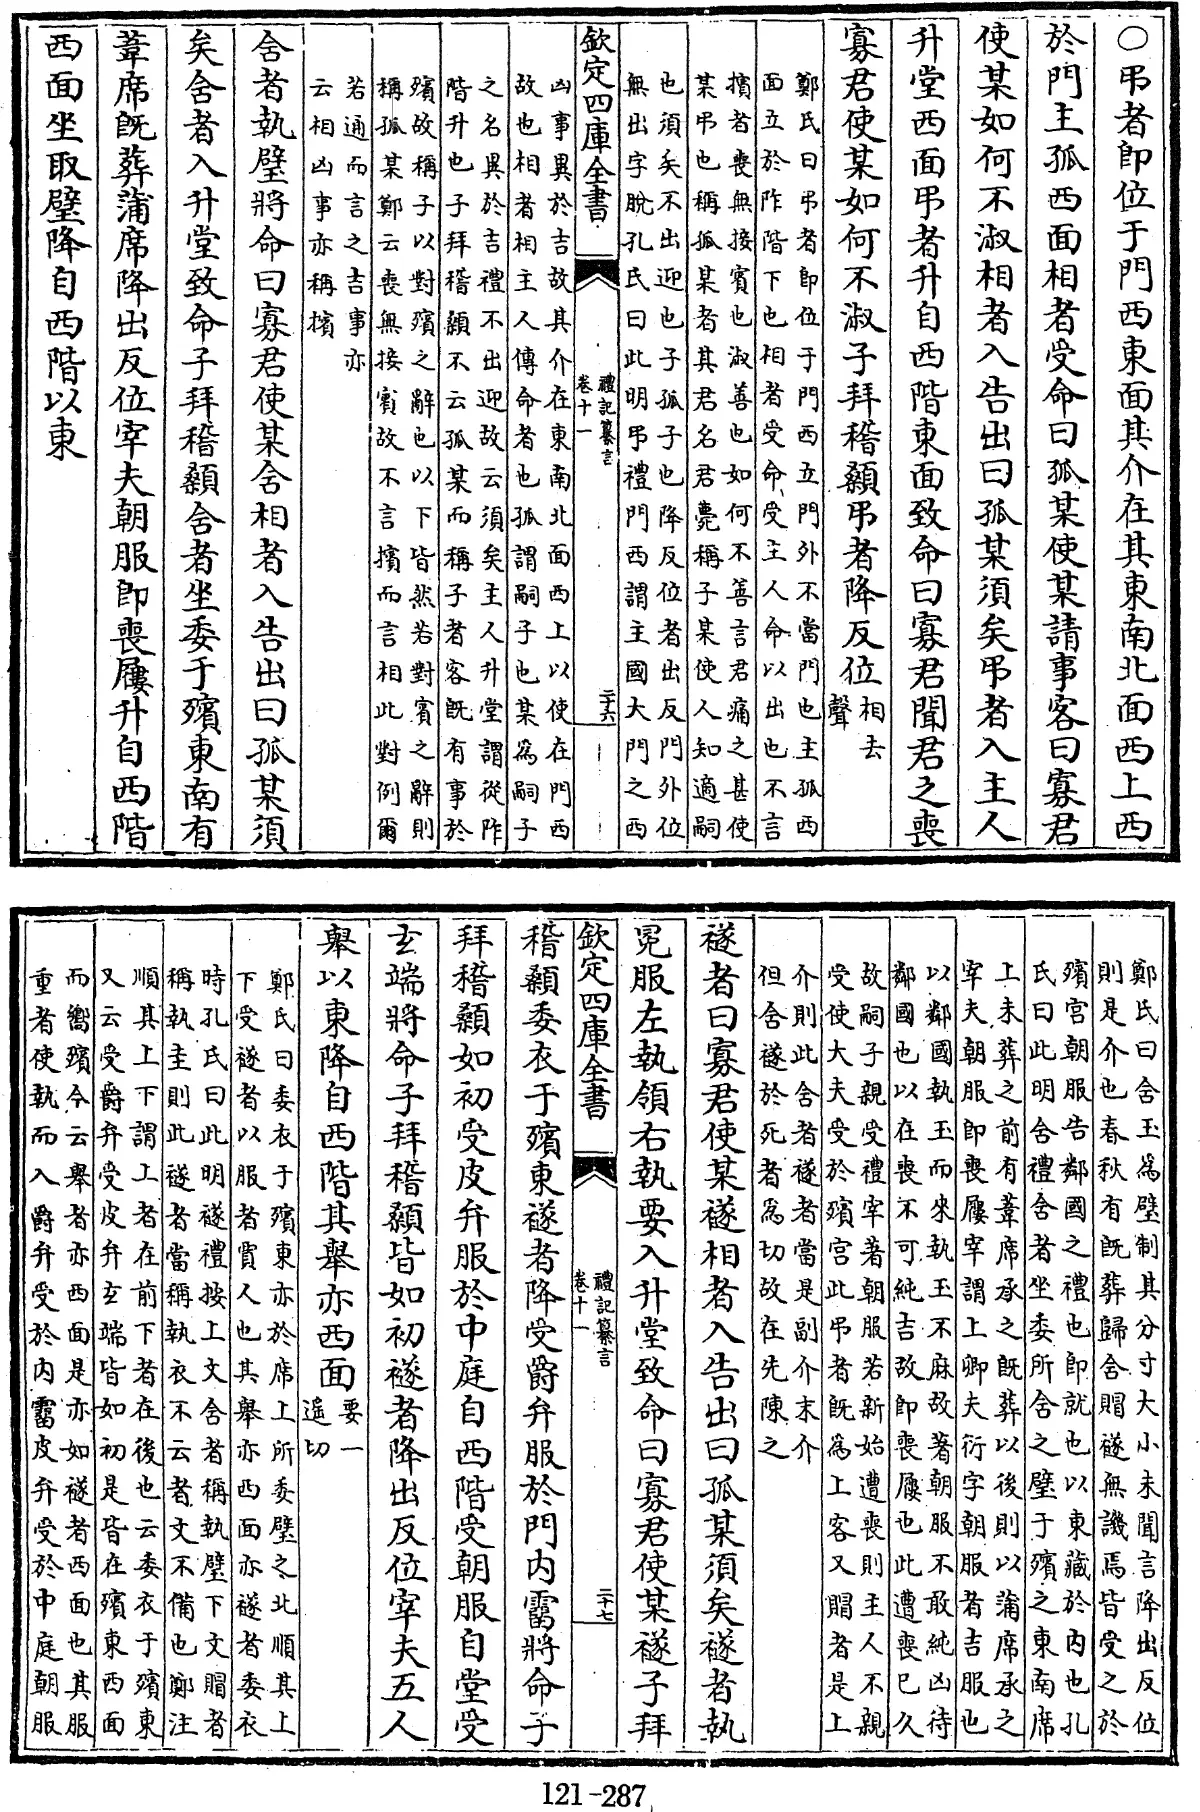 ○弔者即位于門西東面其介在其東南北面西上西
於門主孤西面相者受命曰孤某使某請事客曰寡君
使某如何不淑相者入告出曰孤某須矣弔者入主人
升堂西面弔者升自西階東面致命曰寡君聞君之喪
寡君使某如何不淑子拜稽顙弔者降反位相去
聲
鄭氏曰弔者即位于門西立門外不當門也主孤西
面立於阼階下也相者受命受主人命以出也不言
擯者喪無接賓也淑善也如何不善言君痛之甚使
某弔也稱孤某者其君名君薨稱子某使人知適嗣
也須矣不出迎也子孤子也降反位者出反門外位
無出字脫孔氏曰此明弔禮門西謂主國大門之西
欽定四庫全書
禮記纂言
卷十一
二十六
凶事異於吉故其介在東南北面西上以使在門西
故也相者相主人傳命者也孤謂嗣子也某為嗣子
之名異於吉禮不出迎故云須矣主人升堂謂從阼
階升也子拜稽顙不云孤某而稱子者客既有事於
殯故稱子以對殯之辭也以下皆然若對賓之辭則
稱孤某鄭云喪無接賓故不言擯而言相此對例爾
若通而言之吉事亦
云相凶事亦稱擯
含者執璧將命曰寡君使某含相者入告出曰孤某須
矣含者入升堂致命子拜稽顙含者坐委于殯東南有
葦席既葬蒲席降出反位宰夫朝服即喪屨升自西階
西面坐取璧降自西階以東
鄭氏曰含玉為璧制其分寸大小未聞言降出反位
則是介也春秋有既葬歸含賵襚無譏焉皆受之於
殯宮朝服告鄰國之禮也即就也以東藏於內也孔
氏曰此明含禮含者坐委所含之璧于殯之東南席
上未葬之前有葦席承之既葬以後則以蒲席承之
宰夫朝服即喪屨宰謂上卿夫衍字朝服者吉服也
以鄰國執玉而來執玉不麻故著朝服不敢純凶待
鄰國也以在喪不可純吉故即喪屨也此遭喪已久
故嗣子親受禮宰著朝服若新始遭喪則主人不親
受使大夫受於殯宮此弔者既為上客又賵者是上
介則此含者襚者當是副介末介
但含襚於死者為切故在先陳之
襚者曰寡君使某襚相者入告出曰孤某須矣襚者執
冕服左執領右執要入升堂致命曰寡君使某襚子拜
欽定四庫全書
禮記纂言
卷十一
二十七
稽顙委衣于殯東襚者降受爵弁服於門内霤將命子
拜稽顙如初受皮弁服於中庭自西階受朝服自堂受
玄端將命子拜稽顙皆如初襚者降出反位宰夫五人
舉以東降自西階其舉亦西面要一
遥切
鄭氏曰委衣于殯東亦於席上所委璧之北順其上
下受襚者以服者賈人也其舉亦西面亦襚者委衣
時孔氏曰此明襚禮按上文含者稱執璧下文賵者
稱執圭則此襚者當稱執衣不云者文不備也鄭注
順其上下謂上者在前下者在後也云委衣于殯東
又云受爵弁受皮弁玄端皆如初是皆在殯東西面
而嚮殯今云舉者亦西面是亦如襚者西面也其服
重者使執而入爵弁受於内霤皮弁受於中庭朝服
121-287